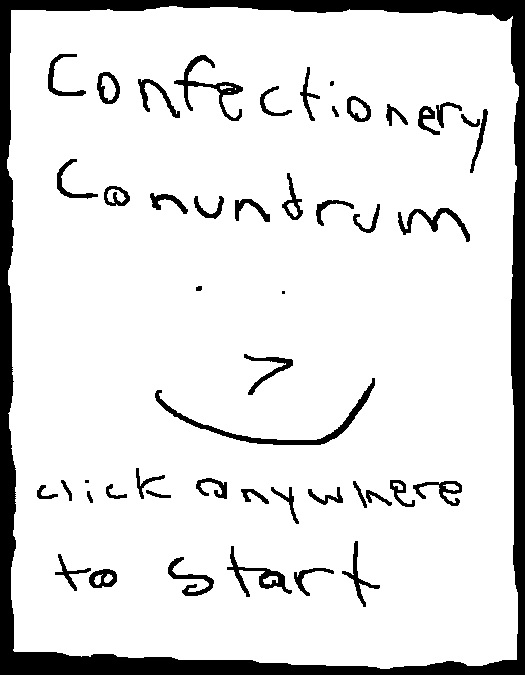 Confectionery
Conundrum
click anywhere
to start